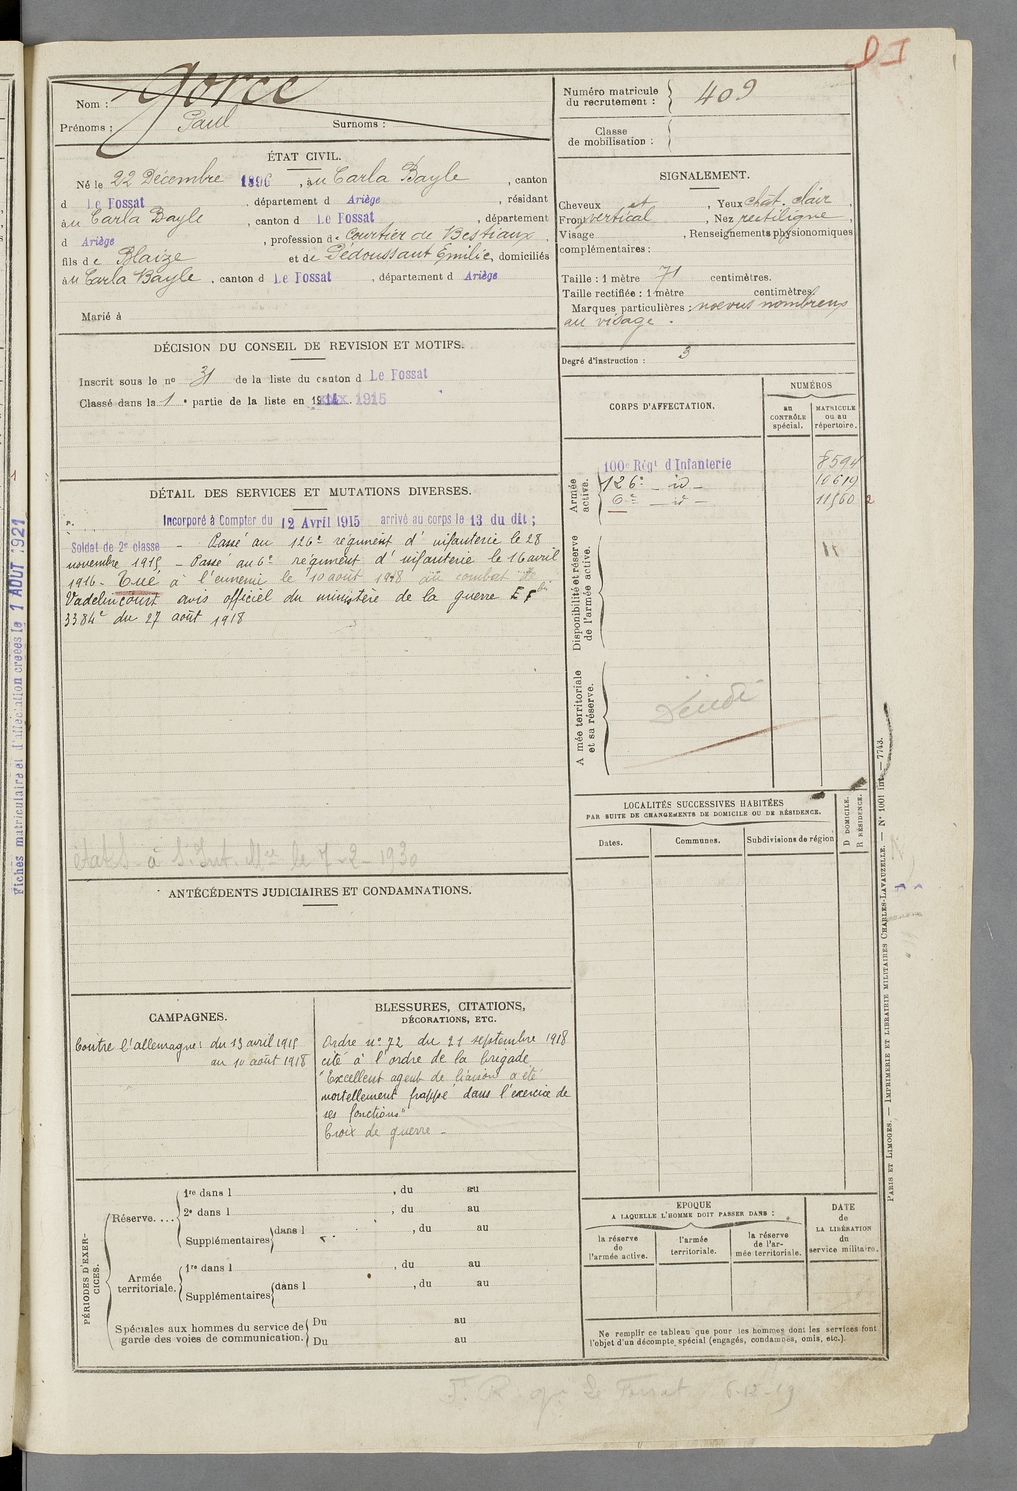 Gorce
Nom :
Prénoms : Paul Surnoms :
ÉTAT CIVIL.
Né le 22 Décembre 1896, au Carla Bayle, canton
d Le Fossat, département d Ariège, résidant
au Carla Bayle, canton d Le Fossat, département
d Ariège, profession de Courtier de Bestiaux,
fils de Blaize et de Dédoussaut Emilie, domiciliés
au Carla Bayle, canton d Le Fossat, département d Ariège
Marié à
DÉCISION DU CONSEIL DE REVISION ET MOTIFS.
Inscrit sous le no 31 de la liste du canton d Le Fossat
Classé dans la 1e partie de la liste en 1915
DÉTAIL DES SERVICES ET MUTATIONS DIVERSES.
Incorporé à Compter du 12 Avril 1915 arrivé au corps le 13 du dit ;
Soldat de 2e classe – Passé au 126e régiment d'infanterie le 28
novembre 1915 – Passé au 6e régiment d'infanterie le 16 avril
1916 – Tué à l'ennemi le 10 août 1918 au combat de
Vadelincourt avis officiel du ministère de la guerre E F bis
3384e du 27 août 1918
états à S. Int. Mre le 7-2-1930
ANTÉCÉDENTS JUDICIAIRES ET CONDAMNATIONS.
CAMPAGNES.
Contre l'allemagne : du 13 avril 1915
au 10 août 1918
BLESSURES, CITATIONS,
DÉCORATIONS, ETC.
Ordre no 72 du 21 septembre 1918
cité à l'ordre de la brigade
"Excellent agent de liaison a été
mortellement frappé dans l'exercice de
ses fonctions"
Croix de guerre –
PÉRIODES D'EXER-
CICES.
Réserve....
1re dans l , du au
2e dans l , du au
Supplémentaires dans l , du au
Armée
territoriale.
1re dans l , du au
Supplémentaires dans l , du au
Spéciales aux hommes du service de
garde des voies de communication.
Du au
Du au
Numéro matricule
du recrutement : 409
Classe
de mobilisation :
SIGNALEMENT.
Cheveux et , Yeux chat. clair,
Front vertical , Nez rectiligne,
Visage , Renseignements physionomiques
complémentaires :
Taille : 1 mètre 71 centimètres.
Taille rectifiée : 1 mètre centimètres.
Marques particulières : noevus nombreux
au visage.
Degré d'instruction : 3
CORPS D'AFFECTATION.
NUMÉROS
au
CONTRÔLE
spécial.
MATRICULE
ou au
répertoire.
Armée
active.
100e Régt d'Infanterie 8594
126e – id – 10619
6e – id – 11560
2
Disponibilité et réserve
de l'armée active.
Armée territoriale
et sa réserve.
LOCALITÉS SUCCESSIVES HABITÉES
PAR SUITE DE CHANGEMENTS DE DOMICILE OU DE RÉSIDENCE.
Dates.
Communes.
Subdivisions de région
D DOMICILE.
R RÉSIDENCE.
EPOQUE
A LAQUELLE L'HOMME DOIT PASSER DANS :
la réserve
de
l'armée active.
l'armée
territoriale.
la réserve
de l'ar-
mée territoriale.
DATE
de
LA LIBÉRATION
du
service militaire.
Ne remplir ce tableau que pour les hommes dont les services font
l'objet d'un décompte spécial (engagés, condamnés, omis, etc.).
PARIS ET LIMOGES. — IMPRIMERIE ET LIBRAIRIE MILITAIRES CHARLES-LAVAUZELLE. — No 1001 int. — 7743.
Fiches matriculaire et d'affectation créées le 1 AOUT 1921
Le Fossat 6-12-19